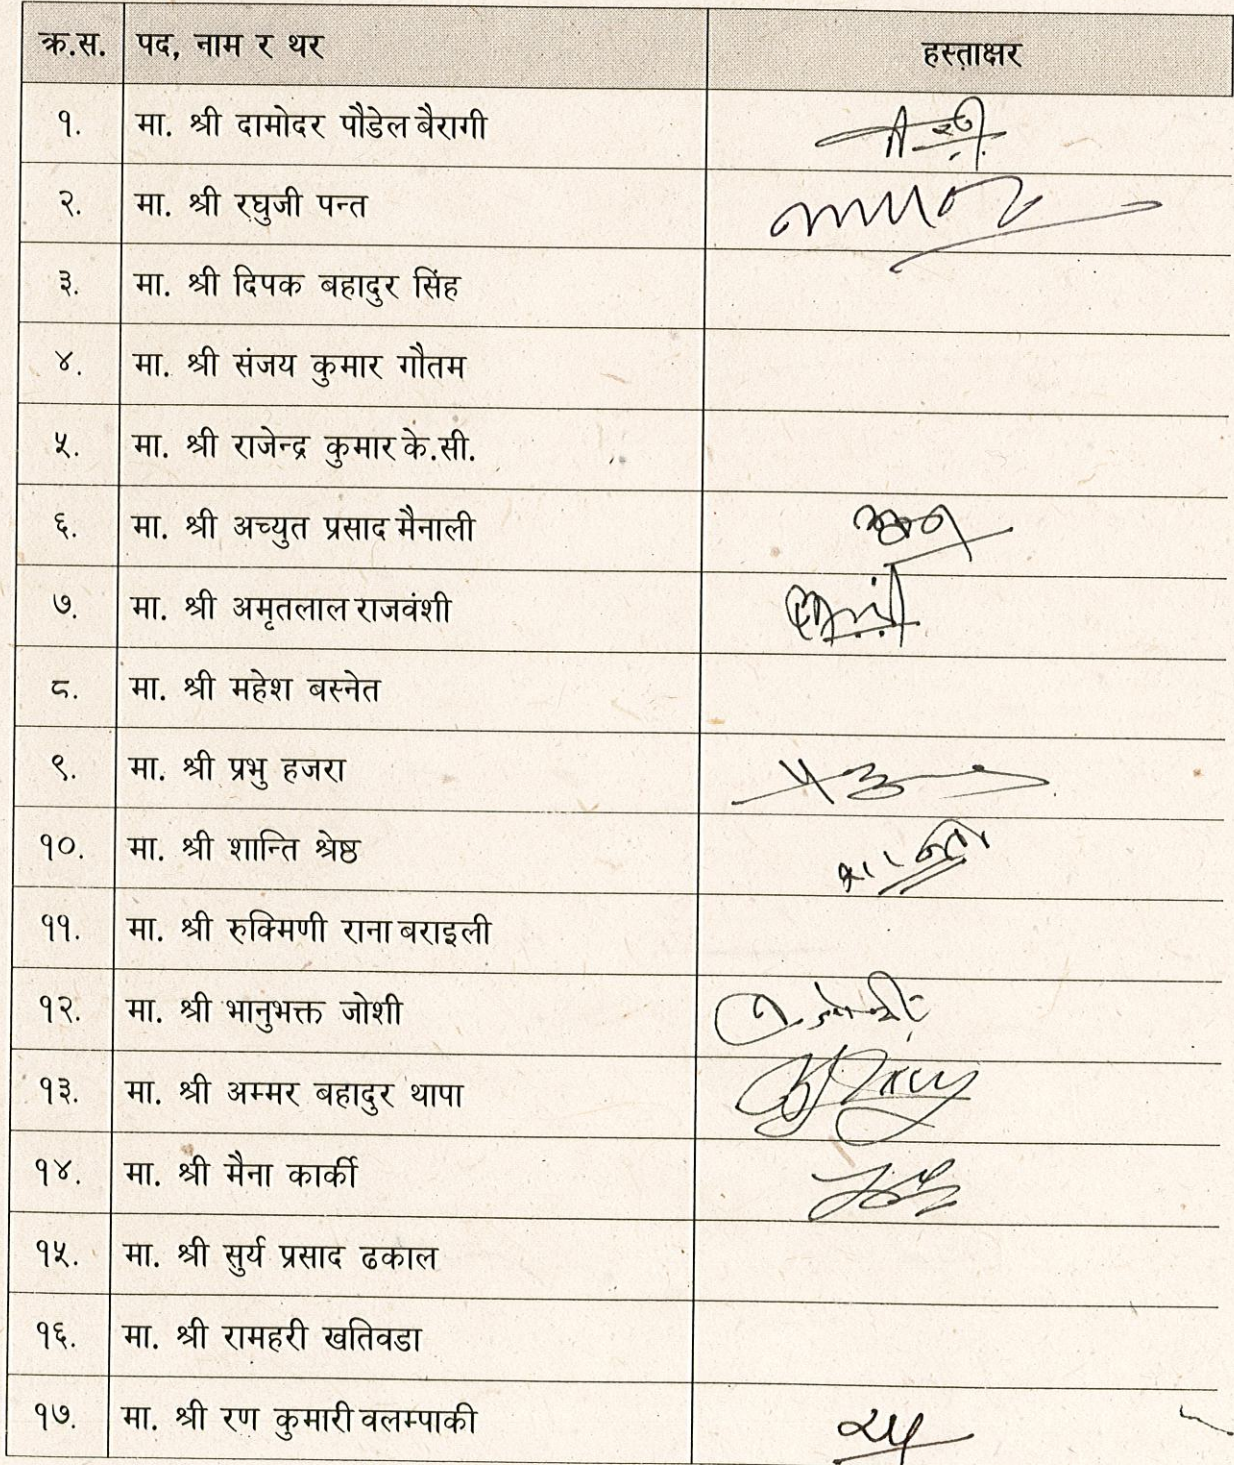 क्र.स. पद, नाम र थर हस्ताक्षर
१. मा. श्री दामोदर पौडेल बैरागी
२. मा. श्री रघुजी पन्त
३. मा. श्री दिपक बहादुर सिंह
४. मा. श्री संजय कुमार गौतम
५. मा. श्री राजेन्द्र कुमार के.सी.
६. मा. श्री अच्युत प्रसाद मैनाली
७. मा. श्री अमृतलाल राजवंशी
८. मा. श्री महेश बस्नेत
९. मा. श्री प्रभु हजरा
१०. मा. श्री शान्ति श्रेष्ठ
११. मा. श्री रुक्मिणी राना बराइली
१२. मा. श्री भानुभक्त जोशी
१३. मा. श्री अम्मर बहादुर थापा
१४. मा. श्री मैना कार्की
१५. मा. श्री सुर्य प्रसाद ढकाल
१६. मा. श्री रामहरी खतिवडा
१७. मा. श्री रण कुमारी वलम्पाकी